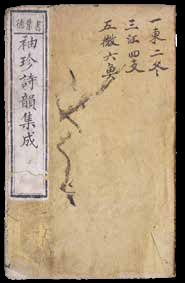 一東二冬
三江四支
五微六魚
袖珍詩韻集成